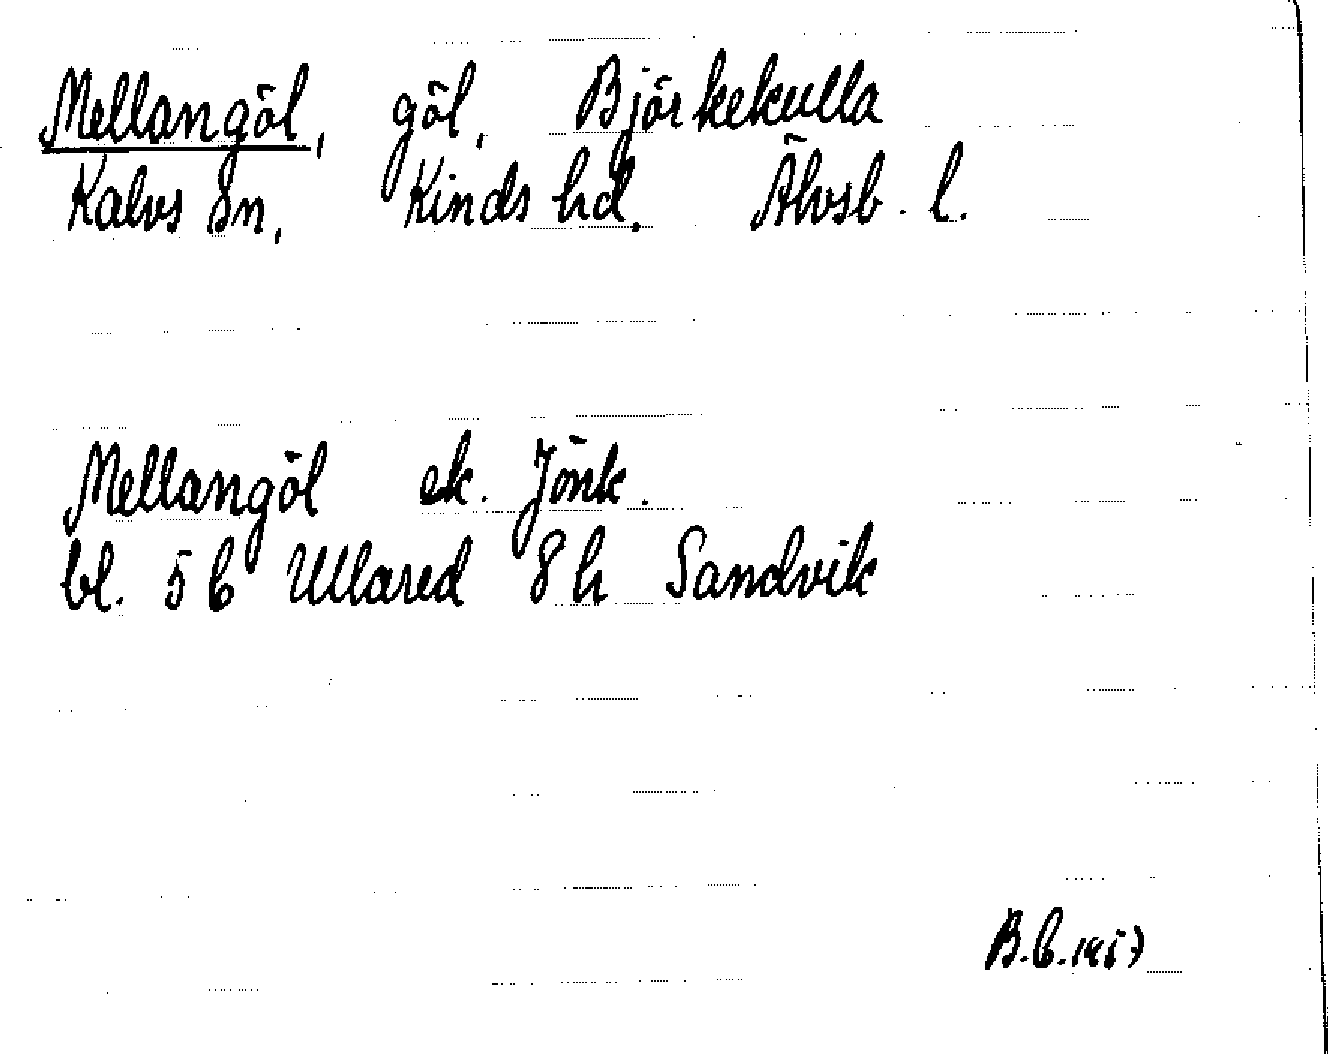 Mellangöl, göl, Björkekulla
Kalvs sn, Kinds hd. Älvsb. l.
Mellangöl ek. Jönk.
bl. 5 b Ullared 8 h Sandvik
B.b. 1957